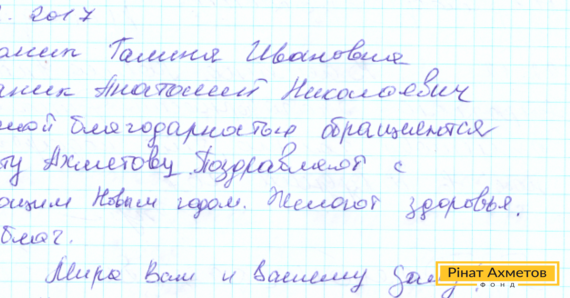 . 2017
аник Галиня Ивановия
аник Анатолий Николаевич
ной благодарностью обращяются
ту Ахметову. Поздравляют с
ющим Новым годом. Желают здоровья,
благ.
Мира Вам и Вашему дому
Рінат Ахметов
ФОНД